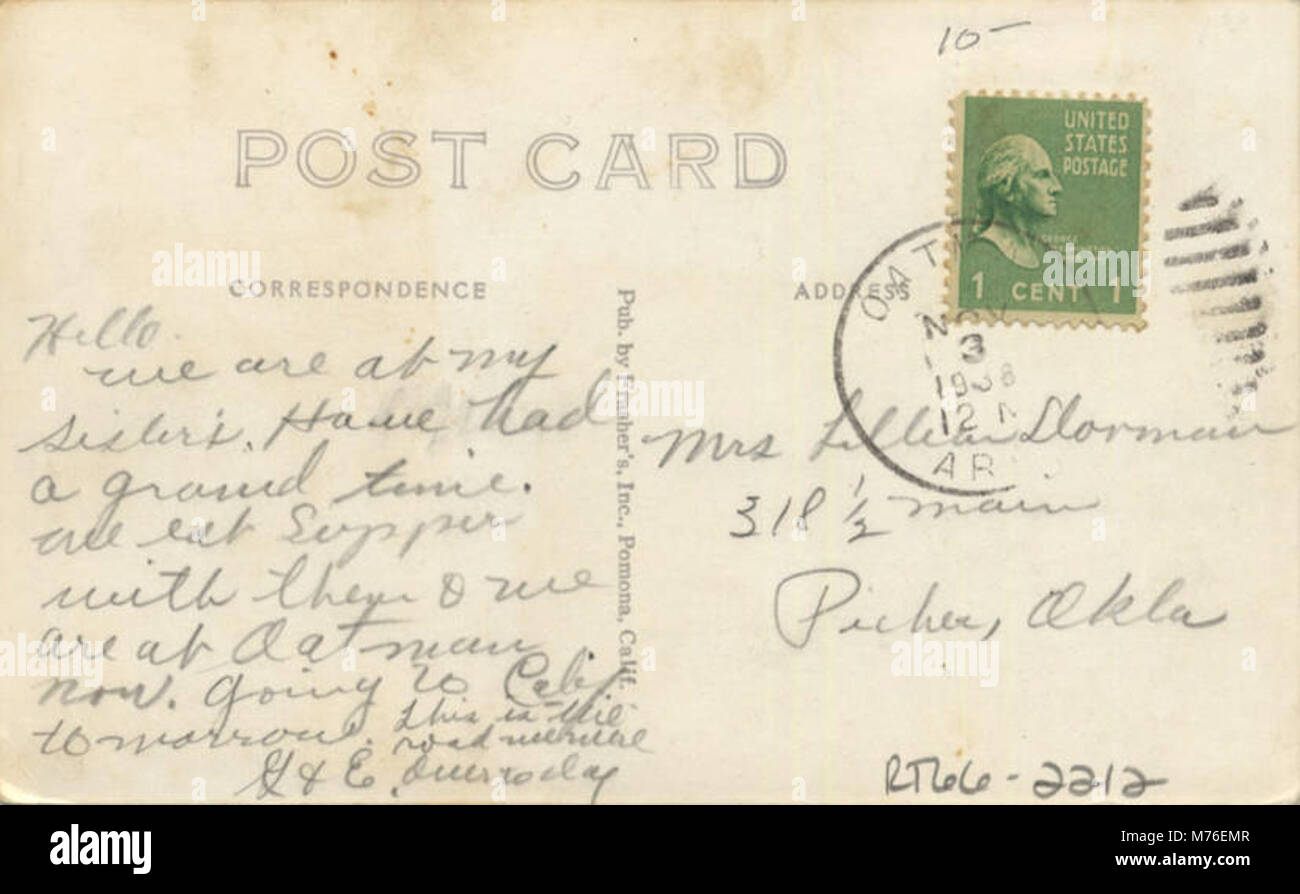 10-
POST CARD
UNITED
STATES
POSTAGE
1 CENT 1
CORRESPONDENCE
ADDRESS
OATM
NOV
3
1938
12
AR
Pub. by Frasher's, Inc., Pomona, Calif.
Hello.
we are at my
sister's. Have had
a grand time.
are eat Supper
with them & we
are at Oatman
now. going to Calif
tomorrow. this is the
road we
G & E. over today
Mrs Lillian Dorman
318 1/2 main
Picher, Okla
RT66-2212
alamy
Image ID: M76EMR
www.alamy.com